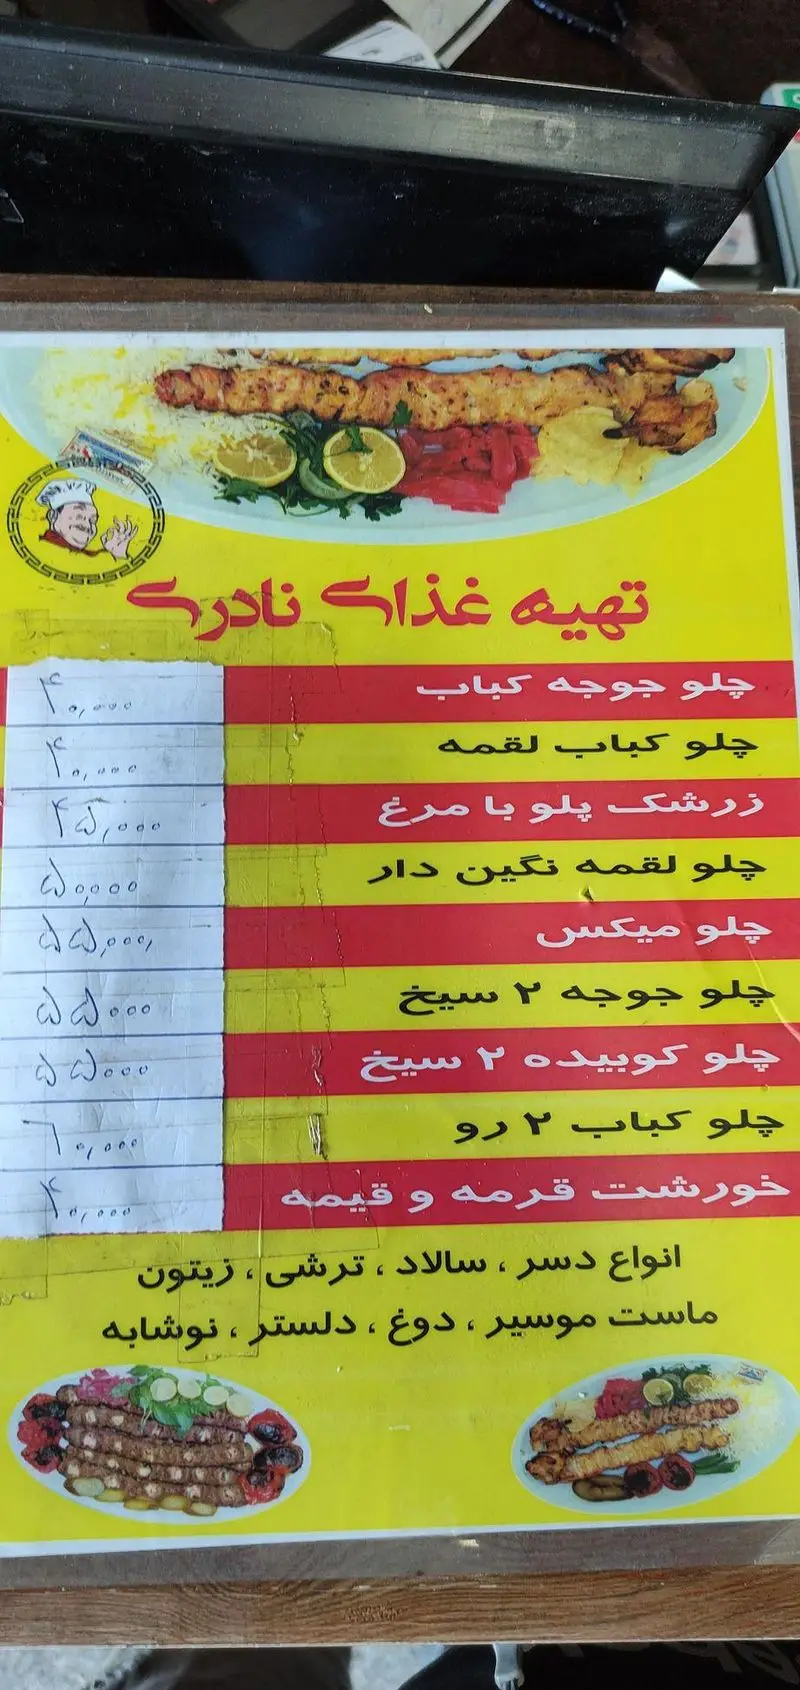 تهیه غذای نادری
چلو جوجه کباب ۴۰,۰۰۰
چلو کباب لقمه ۴۰,۰۰۰
زرشک پلو با مرغ ۴۵,۰۰۰
چلو لقمه نگین دار ۵۰,۰۰۰
چلو میکس ۵۵,۰۰۰
چلو جوجه ۲ سیخ ۵۵۰۰۰
چلو کوبیده ۲ سیخ ۵۵۰۰۰
چلو کباب ۲ رو ۶۰,۰۰۰
خورشت قرمه و قیمه ۴۰,۰۰۰
انواع دسر ، سالاد ، ترشی ، زیتون
ماست موسیر ، دوغ ، دلستر ، نوشابه